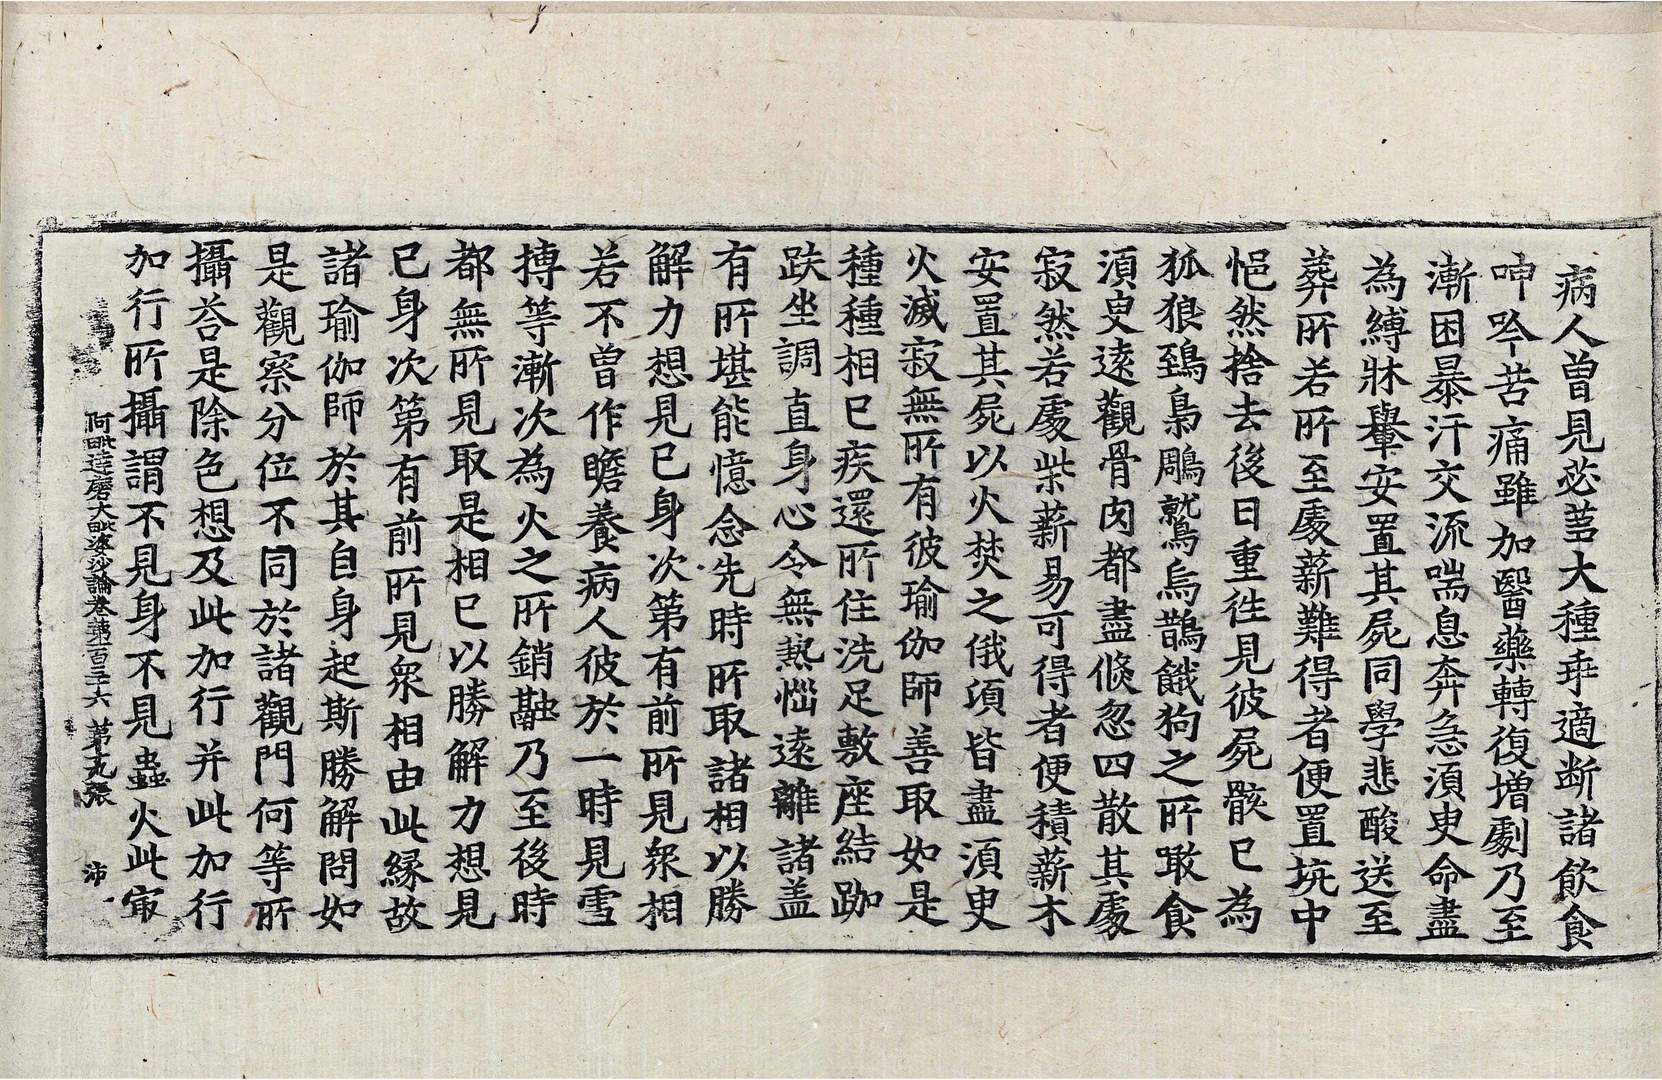 病人曾見苾芻大種乖適斷諸飲食
呻吟苦痛雖加醫藥轉復增劇乃至
漸困暴汗交流喘息奔急須臾命盡
為縛牀轝安置其屍同學悲酸送至
葬所若所至處薪難得者便置坑中
悒然捨去後日重往見彼屍骸已為
狐狼鵄梟鵰鷲烏鵲餓狗之所噉食
須臾遠觀骨肉都盡倏忽四散其處
寂然若處柴薪易可得者便積薪木
安置其屍以火焚之俄頃皆盡須臾
火滅寂無所有彼瑜伽師善取如是
種種相已疾還所住洗足敷座結跏
趺坐調直身心令無熱惱遠離諸蓋
有所堪能憶念先時所取諸相以勝
解力想見已身次第有前所見眾相
若不曾作瞻養病人彼於一時見雪
摶等漸次為火之所銷融乃至後時
都無所見取是相已以勝解力想見
已身次第有前所見眾相由此緣故
諸瑜伽師於其自身起斯勝解問如
是觀察分位不同於諸觀門何等所
攝荅是除色想及此加行并此加行
加行所攝謂不見身不見蟲火此㝡
阿毗達磨大毗婆沙論卷第一百三十六 第九張 沛